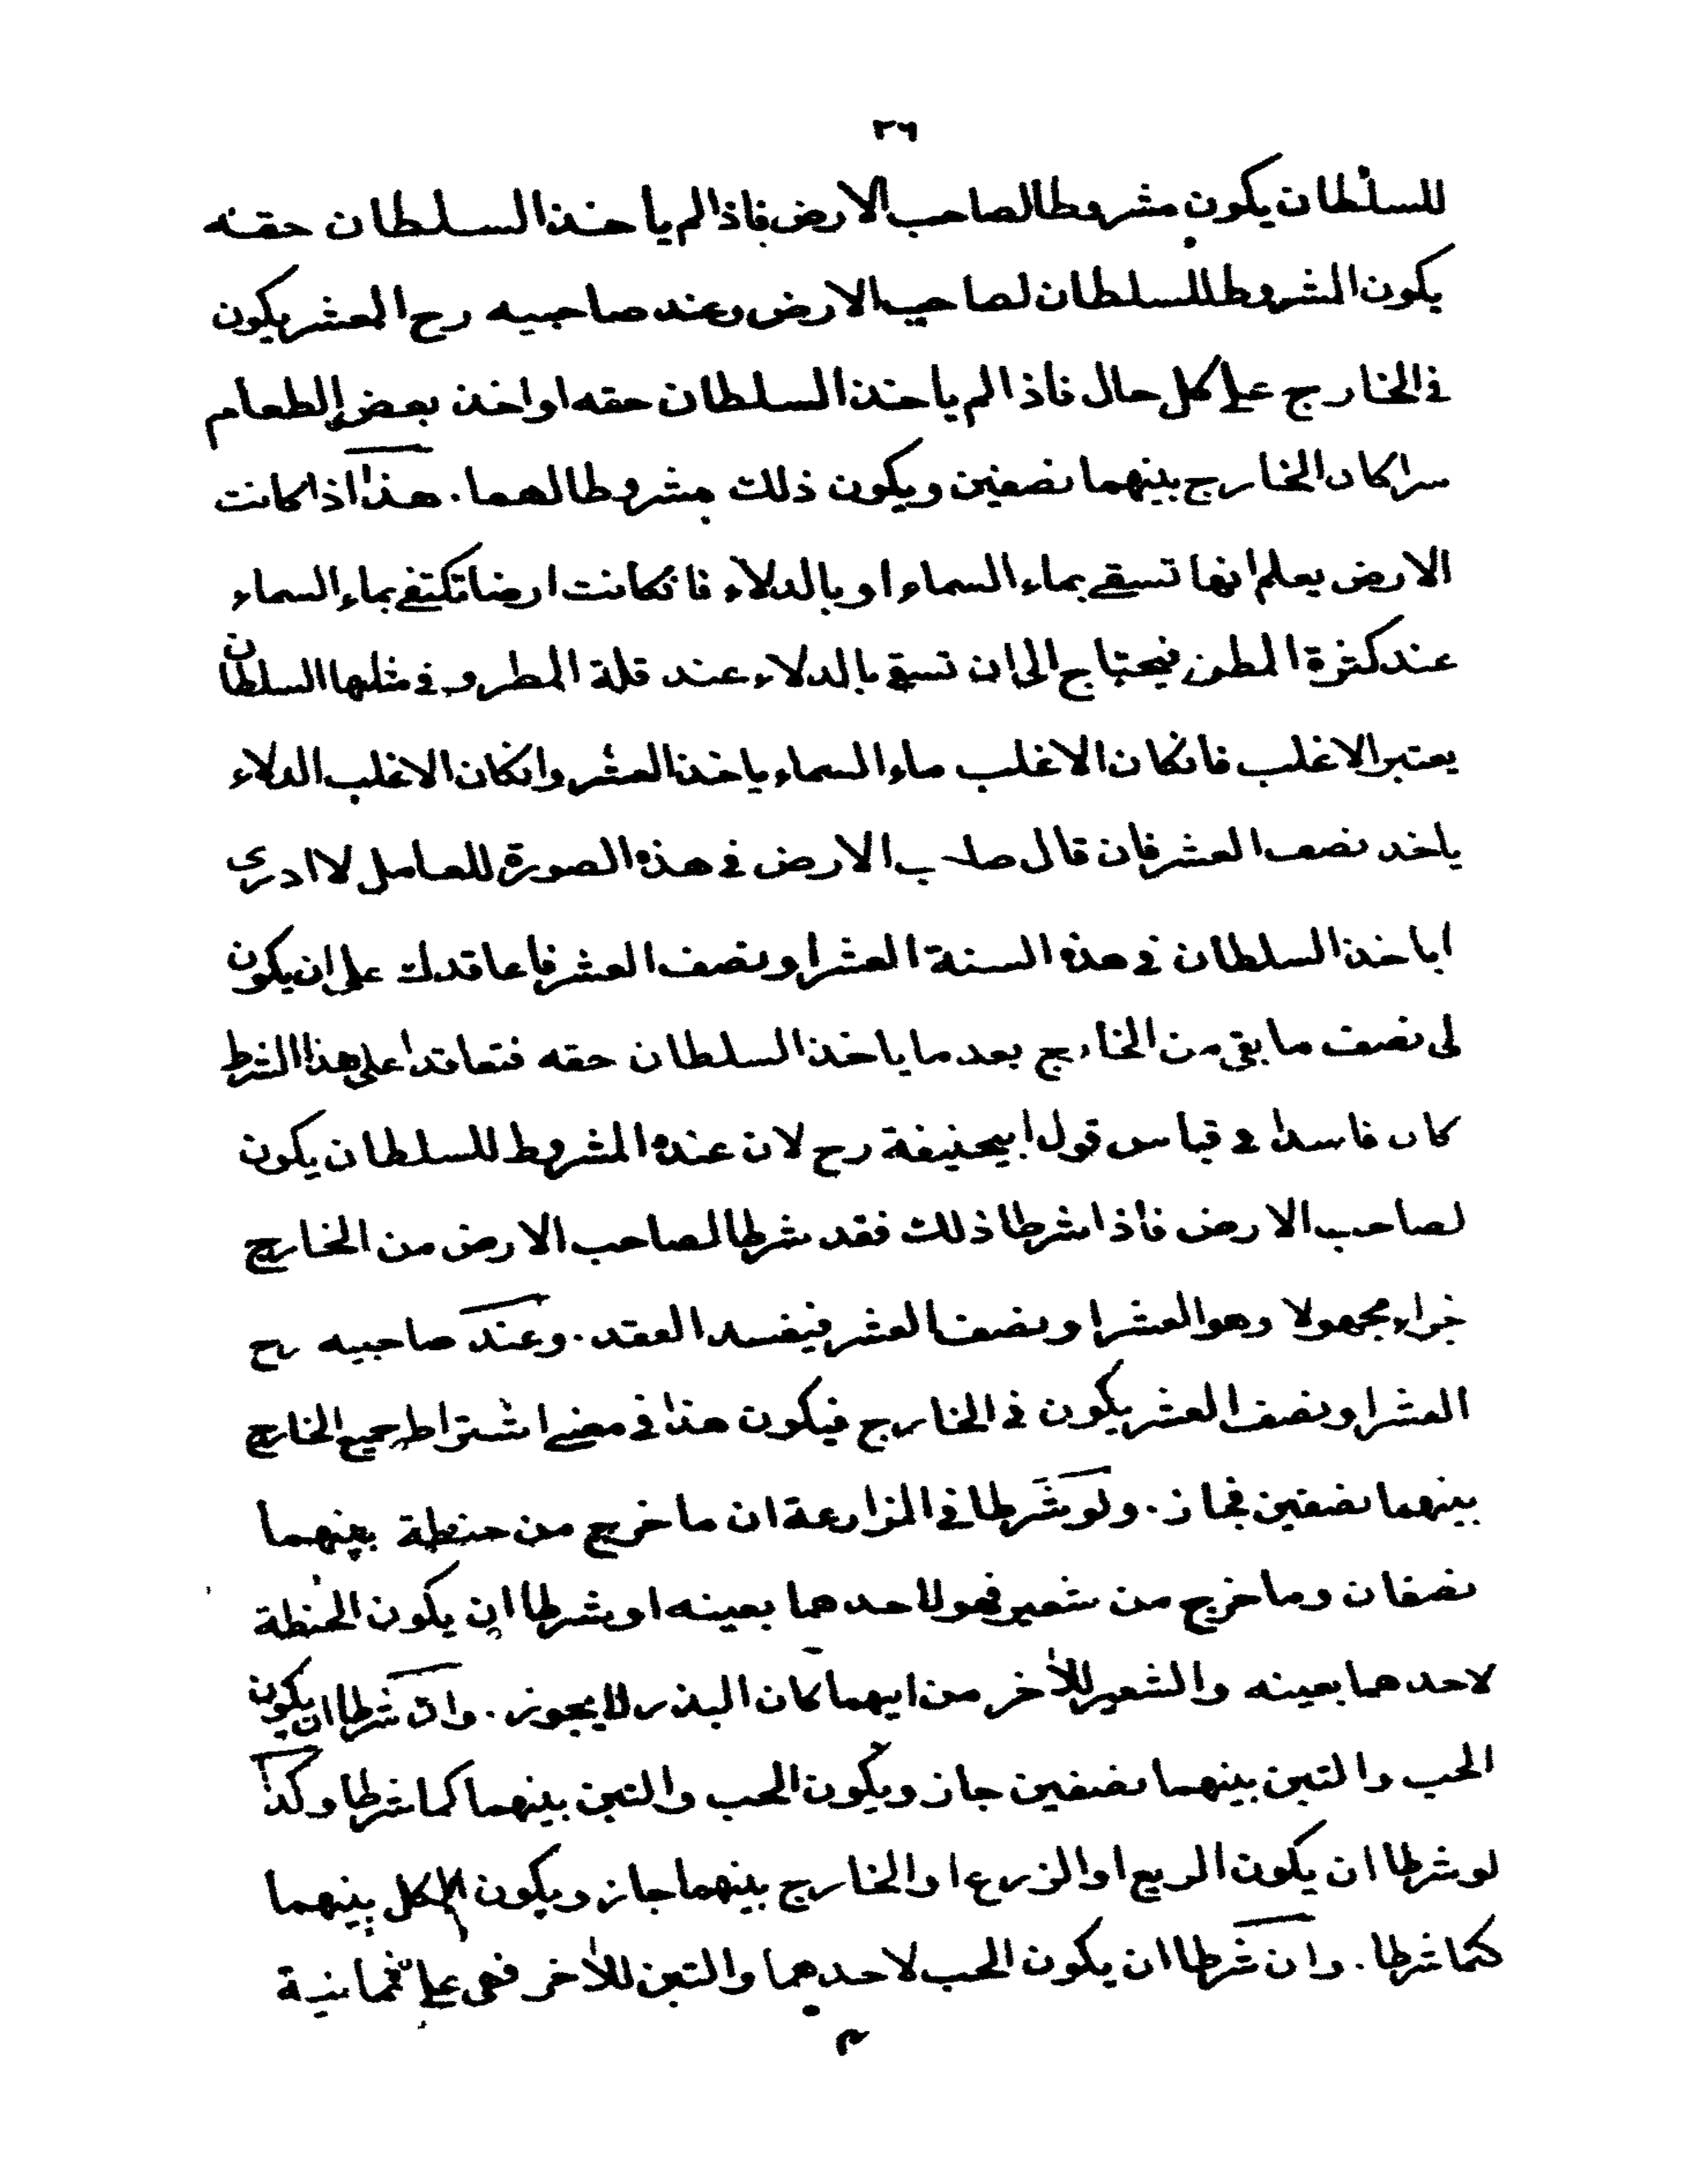 ٢٦
للسلطان يكون مشروطا لصاحب الارض فاذا لم ياخذ السلطان حقه
يكون المشروط للسلطان لصاحب الارض وعند صاحبيه رح العشر يكون
في الخارج على كل حال فاذا لم ياخذ السلطان حقه او اخذ بعض الطعام
سرا كان الخارج بينهما نصفين ويكون ذلك مشروطا لهما. هذا اذا كانت
الارض يعلم انها تسقى بماء السماء او بالدلاء فانكانت ارضا تكتفى بماء السماء
عند كثرة المطر فيحتاج الى ان تسقى بالدلاء عند قلة المطر وفي مثلها السلطان
يعتبر الاغلب فانكان الاغلب ماء السماء ياخذ العشر وانكان الاغلب الدلاء
ياخذ نصف العشر فان قال صاحب الارض في هذه الصورة للعامل لا ادري
اياخذ السلطان في هذه السنة العشر او نصف العشر فاعاقدك على ان يكون
لي نصف ما بقي من الخارج بعد ما ياخذ السلطان حقه فتعاقدا على هذا الشرط
كان فاسدا في قياس قول ابيحنيفة رح لان عنده المشروط للسلطان يكون
لصاحب الارض فاذا شرطا ذلك فقد شرطا لصاحب الارض من الخارج
جزاء مجهولا وهو العشر او نصف العشر فيفسد العقد. وعند صاحبيه رح
العشر او نصف العشر يكون في الخارج فيكون هذا في معنى اشتراط جميع الخارج
بينهما نصفين فجاز. ولو شرطا في المزارعة ان ما خرج من حنطة بينهما
نصفان وما خرج من شعير فهو لاحدهما بعينه او شرطا ان يكون الحنطة
لاحدهما بعينه والشعير للآخر من ايهما كان البذر لا يجوز. وان شرطا ان يكون
الحب والتبن بينهما نصفين جاز ويكون الحب والتبن بينهما كما شرطا وكذا
لو شرطا ان يكون الريع او الزرع او الخارج بينهما جاز ويكون الكل بينهما
كما شرطا. وان شرطا ان يكون الحب لاحدهما والتبن للآخر فهى على ثمانية